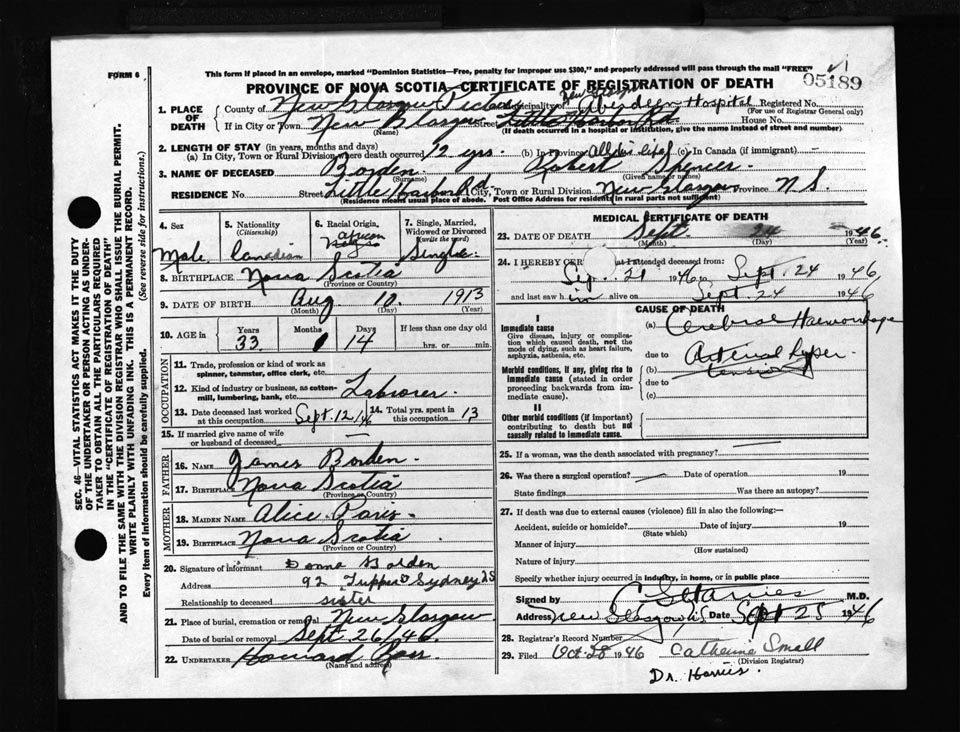 FORM 6
This form if placed in an envelope, marked "Dominion Statistics—Free, penalty for improper use $300," and properly addressed will pass through the mail "FREE"
05189
PROVINCE OF NOVA SCOTIA—CERTIFICATE OF REGISTRATION OF DEATH
1. PLACE OF DEATH
County of New Glasgow Pictou Municipality of New Glasgow Aberdeen Hospital Registered No.
(For use of Registrar General only)
If in City or Town New Glasgow Street Little Harbor Rd. House No.
(Name) (If death occurred in a hospital or institution, give the name instead of street and number)
2. LENGTH OF STAY (in years, months and days)
(a) In City, Town or Rural Division where death occurred 12 yrs. (b) In Province All his life (c) In Canada (if immigrant) —
3. NAME OF DECEASED Borden Robert Spencer
(Surname) (Given name or names)
RESIDENCE No. Street Little Harbor Rd. City, Town or Rural Division New Glasgow Province N S.
(Residence means usual place of abode. Post Office Address for residents in rural parts not sufficient)
4. Sex
Male
5. Nationality (Citizenship)
Canadian
6. Racial Origin,
African
7. Single, Married, Widowed or Divorced (write the word)
Single
8. BIRTHPLACE Nova Scotia
(Province or Country)
9. DATE OF BIRTH Aug 10. 1913
(Month) (Day) (Year)
10. AGE in Years 33. Months 1 Days 14 If less than one day old
hrs. or min.
OCCUPATION
11. Trade, profession or kind of work as spinner, teamster, office clerk, etc.
12. Kind of industry or business, as cotton-mill, lumbering, bank, etc. Laborer.
13. Date deceased last worked at this occupation Sept. 12/46
14. Total yrs. spent in this occupation 13
15. If married give name of wife or husband of deceased —
FATHER
16. NAME James Borden.
17. BIRTHPLACE Nova Scotia
(Province or Country)
MOTHER
18. MAIDEN NAME Alice Paris.
19. BIRTHPLACE Nova Scotia
(Province or Country)
20. Signature of informant Donna Borden
Address 92 Tupper Sydney NS
Relationship to deceased sister
21. Place of burial, cremation or removal New Glasgow
Date of burial or removal Sept. 26/46.
22. UNDERTAKER Howard Ross
(Name and address)
MEDICAL CERTIFICATE OF DEATH
23. DATE OF DEATH Sept. 24 1946.
(Month) (Day) (Year)
24. I HEREBY CER at I attended deceased from:
Sep. 21 1946 to Sept. 24 1946,
and last saw him alive on Sept 24 1946
CAUSE OF DEATH
I
Immediate cause
Give disease, injury or complication which caused death, not the mode of dying, such as heart failure, asphyxia, asthenia, etc.
(a) Cerebral Haemorrhage
due to Arterial hyper-
tension
Morbid conditions, if any, giving rise to immediate cause (stated in order proceeding backwards from immediate cause).
(b)
due to
(c)
II
Other morbid conditions (if important) contributing to death but not causally related to immediate cause.
25. If a woman, was the death associated with pregnancy?
26. Was there a surgical operation? Date of operation 19
State findings Was there an autopsy?
27. If death was due to external causes (violence) fill in also the following:—
Accident, suicide or homicide? Date of injury 19
(State which)
Manner of injury
(How sustained)
Nature of injury
Specify whether injury occurred in industry, in home, or in public place
Signed by C S Harries M.D.
Address New Glasgow NS Date Sept 25 1946
28. Registrar's Record Number
29. Filed Oct 28 1946 Catherine Small
(Division Registrar)
Dr. Harries.
SEC. 46—VITAL STATISTICS ACT MAKES IT THE DUTY
OF THE UNDERTAKER OR PERSON ACTING AS UNDER-
TAKER TO OBTAIN ALL THE PARTICULARS REQUIRED
IN THE "CERTIFICATE OF REGISTRATION OF DEATH"
AND TO FILE THE SAME WITH THE DIVISION REGISTRAR WHO SHALL ISSUE THE BURIAL PERMIT.
WRITE PLAINLY WITH UNFADING INK. THIS IS A PERMANENT RECORD.
Every item of information should be carefully supplied. (See reverse side for instructions.)